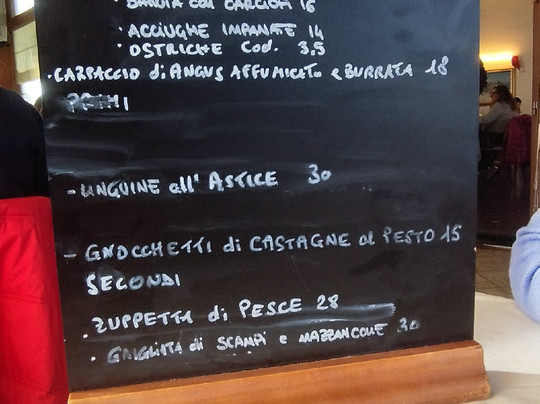 con CARCIOFI 16
• ACCIUGHE IMPANATE 14
• OSTRICHE Cad. 3,5
• CARPACCIO di ANGUS AFFUMICATO e BURRATA 18
PRIMI
- LINGUINE all' ASTICE 30
- GNOCCHETTI di CASTAGNE al PESTO 15
SECONDI
• ZUPPETTA di PESCE 28
• GRIGLIATA di SCAMPI e MAZZANCOLLE 30